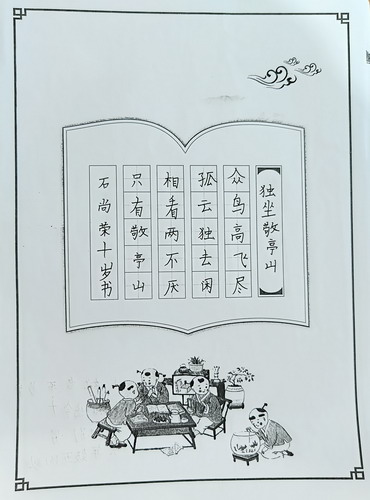 独坐敬亭山
众鸟高飞尽
孤云独去闲
相看两不厌
只有敬亭山
石尚荣十岁书